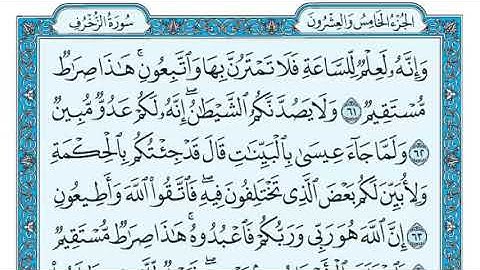 الجزء الخامس والعشرون سورة الزخرف
وَإِنَّهُ لَعِلْمٌ لِّلسَّاعَةِ فَلَا تَمْتَرُنَّ بِهَا وَاتَّبِعُونِ ۚ هَٰذَا صِرَاطٌ
مُّسْتَقِيمٌ ٦١ وَلَا يَصُدَّنَّكُمُ الشَّيْطَانُ ۖ إِنَّهُ لَكُمْ عَدُوٌّ مُّبِينٌ
٦٢ وَلَمَّا جَاءَ عِيسَىٰ بِالْبَيِّنَاتِ قَالَ قَدْ جِئْتُكُم بِالْحِكْمَةِ
وَلِأُبَيِّنَ لَكُم بَعْضَ الَّذِي تَخْتَلِفُونَ فِيهِ ۖ فَاتَّقُوا اللَّهَ وَأَطِيعُونِ
٦٣ إِنَّ اللَّهَ هُوَ رَبِّي وَرَبُّكُمْ فَاعْبُدُوهُ ۚ هَٰذَا صِرَاطٌ مُّسْتَقِيمٌ